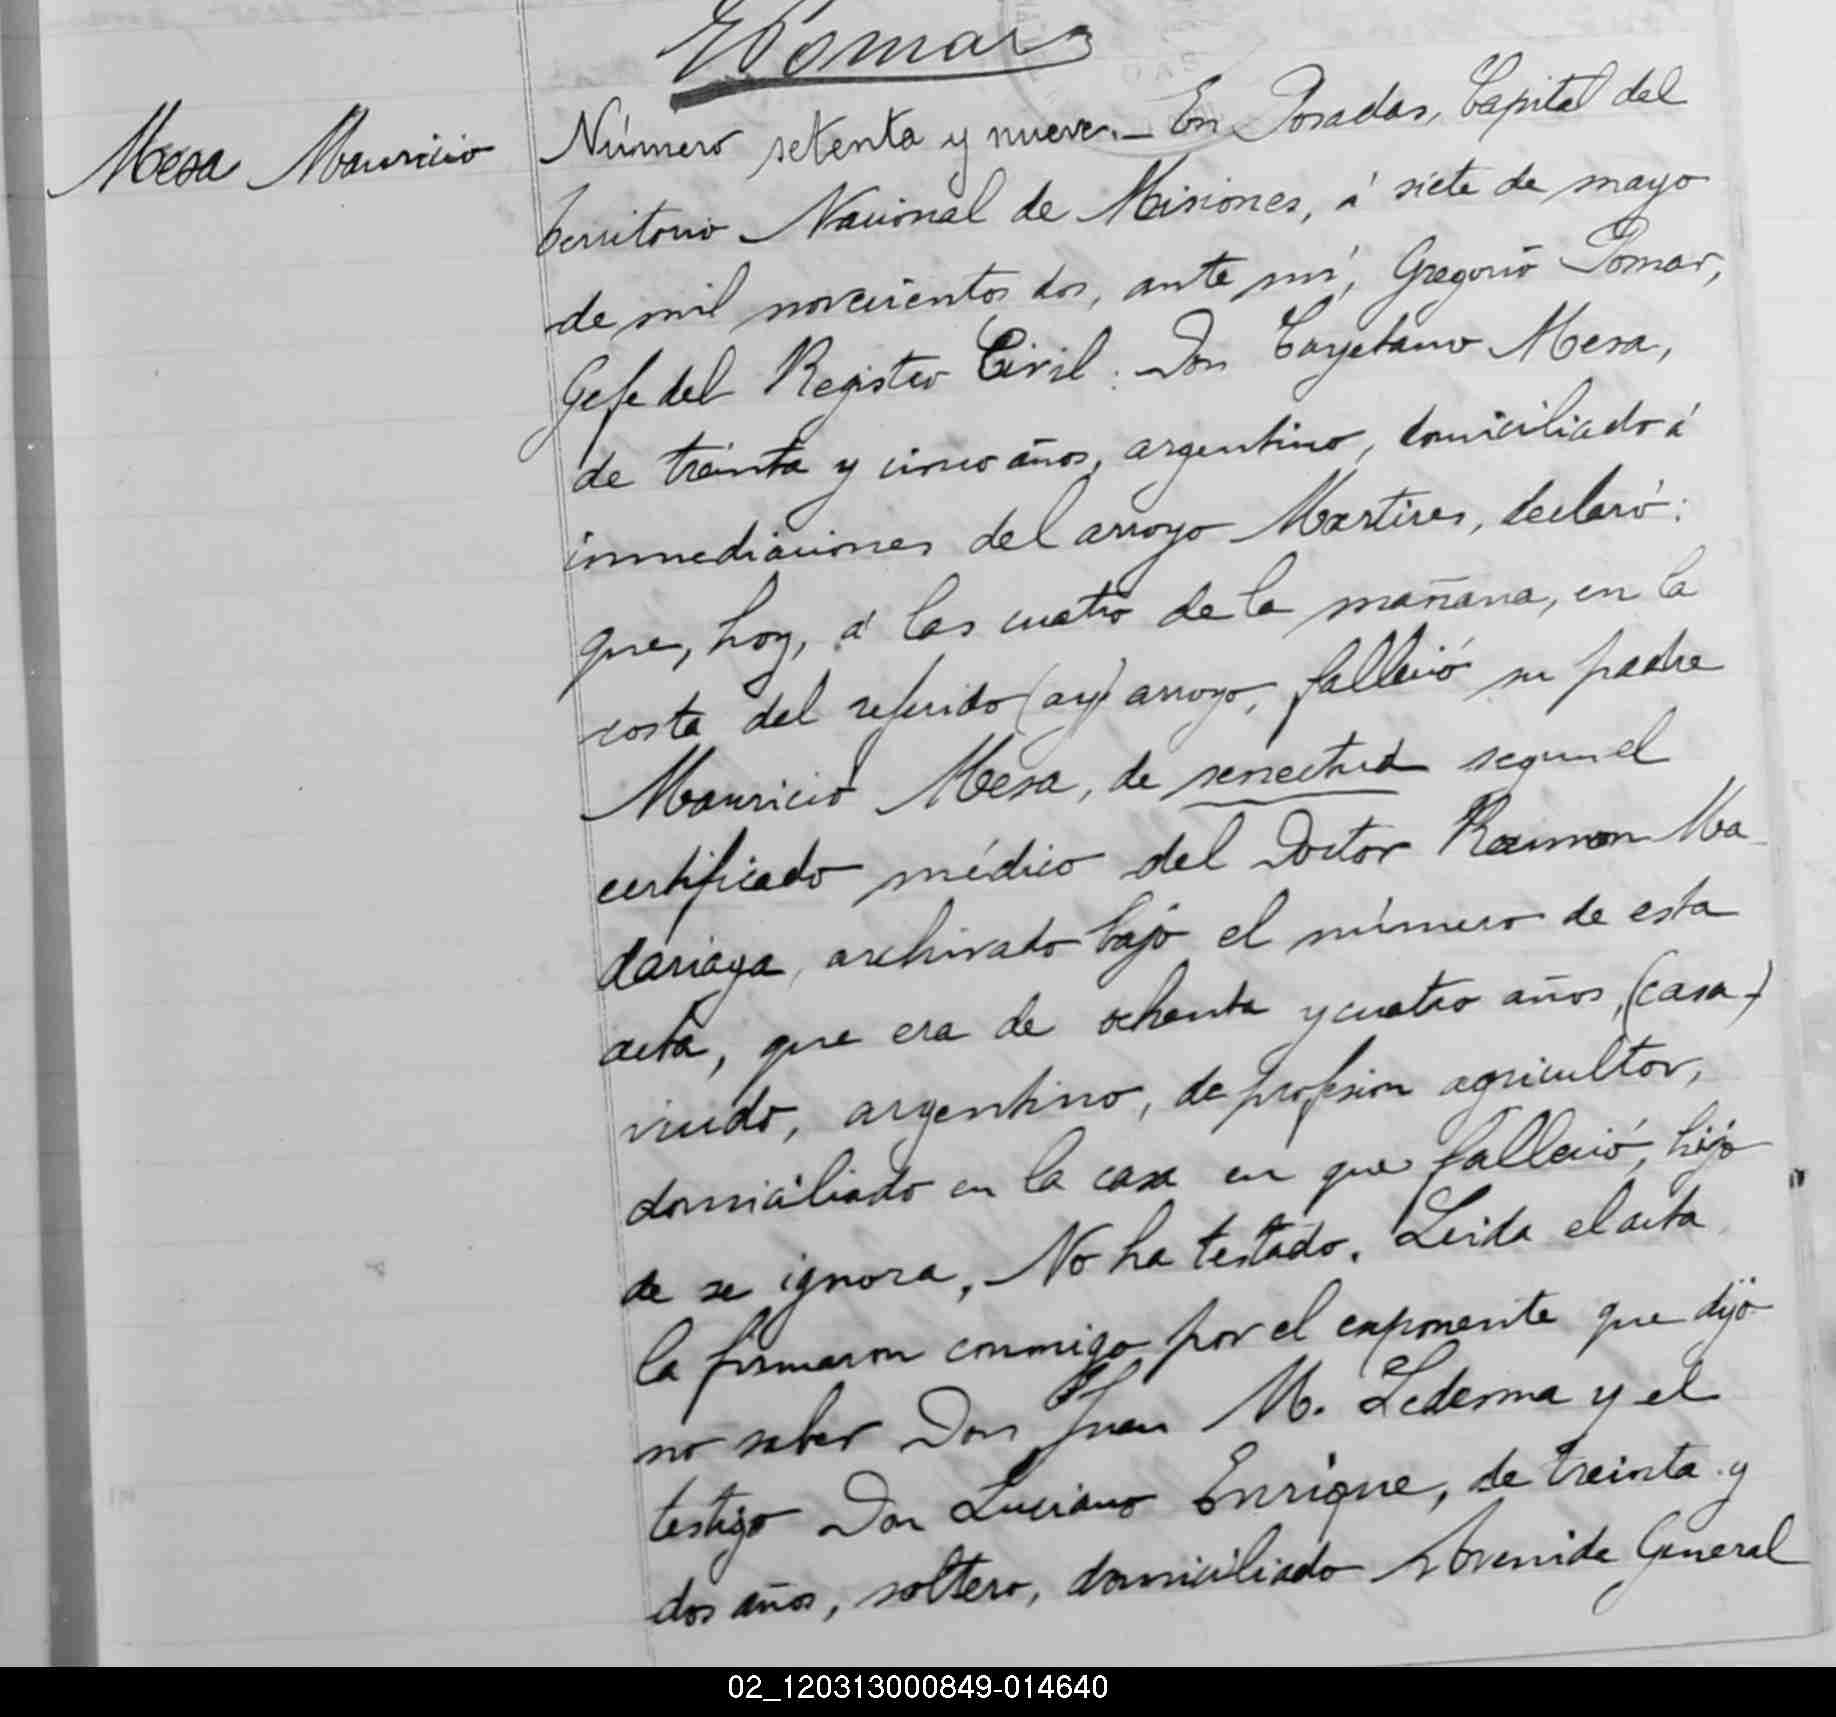 GPomar
Mesa Mauricio
Número setenta y nueve.- En Posadas, Capital del
territorio Nacional de Misiones, á siete de mayo
de mil novecientos dos, ante mí, Gregorio Pomar,
Gefe del Registro Civil: Don Cayetano Mesa,
de treinta y cinco años, argentino, domiciliado á
inmediaciones del arroyo Martires, declaró:
que, hoy, á las cuatro de la mañana, en la
costa del referido (ay) arroyo, falleció su padre
Mauricio Mesa, de senectud segun el
certificado médico del Doctor Ramon Ma-
dariaga, archivado bajo el número de esta
acta, que era de ochenta y cuatro años, (casa-)
viudo, argentino, de profesion agricultor,
domiciliado en la casa en que falleció, hijo
de se ignora, No ha testado. Leida el acta
la firmaron conmigo por el exponente que dijo
no saber Don Juan M. Ledesma y el
testigo Don Luciano Enrique, de treinta y
dos años, soltero, domiciliado Avenida General
02_120313000849-014640